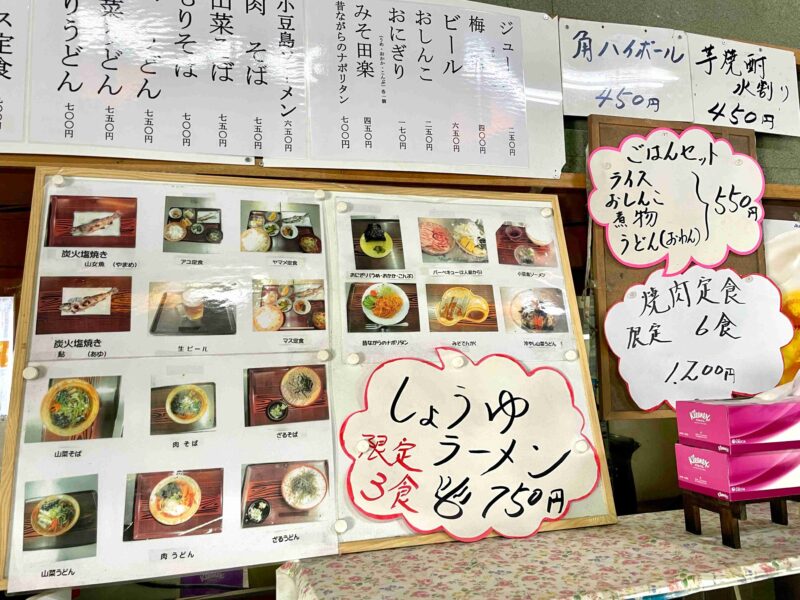 ジュー
二五〇円
梅
四〇〇円
ビール
六五〇円
おしんこ
二五〇円
おにぎり
(うめ・おかか・こんぶ)各一個
一七〇円
みそ田楽
四五〇円
昔ながらのナポリタン
七〇〇円
小豆島ソーメン
六五〇円
肉そば
七五〇円
山菜そば
七五〇円
もりそば
七〇〇円
うどん
七五〇円
菜うどん
七五〇円
りうどん
七〇〇円
ス定食
角ハイボール
450円
芋焼酎
水割り
450円
ごはんセット
ライス
おしんこ
煮物
うどん(おわん)
550円
焼肉定食
限定 6食
1,200円
炭火塩焼き
山女魚 (やまめ)
アユ定食
ヤマメ定食
炭火塩焼き
鮎 (あゆ)
生ビール
マス定食
おにぎり(うめ・おかか・こんぶ)
バーベキュー(2人前から)
小豆島ソーメン
昔ながらのナポリタン
みそでんがく
冷やし山菜うどん !
山菜そば
肉そば
ざるそば
山菜うどん
肉うどん
ざるうどん
しょうゆ
ラーメン
限定
3食
750円
Kleenex
Kleenex